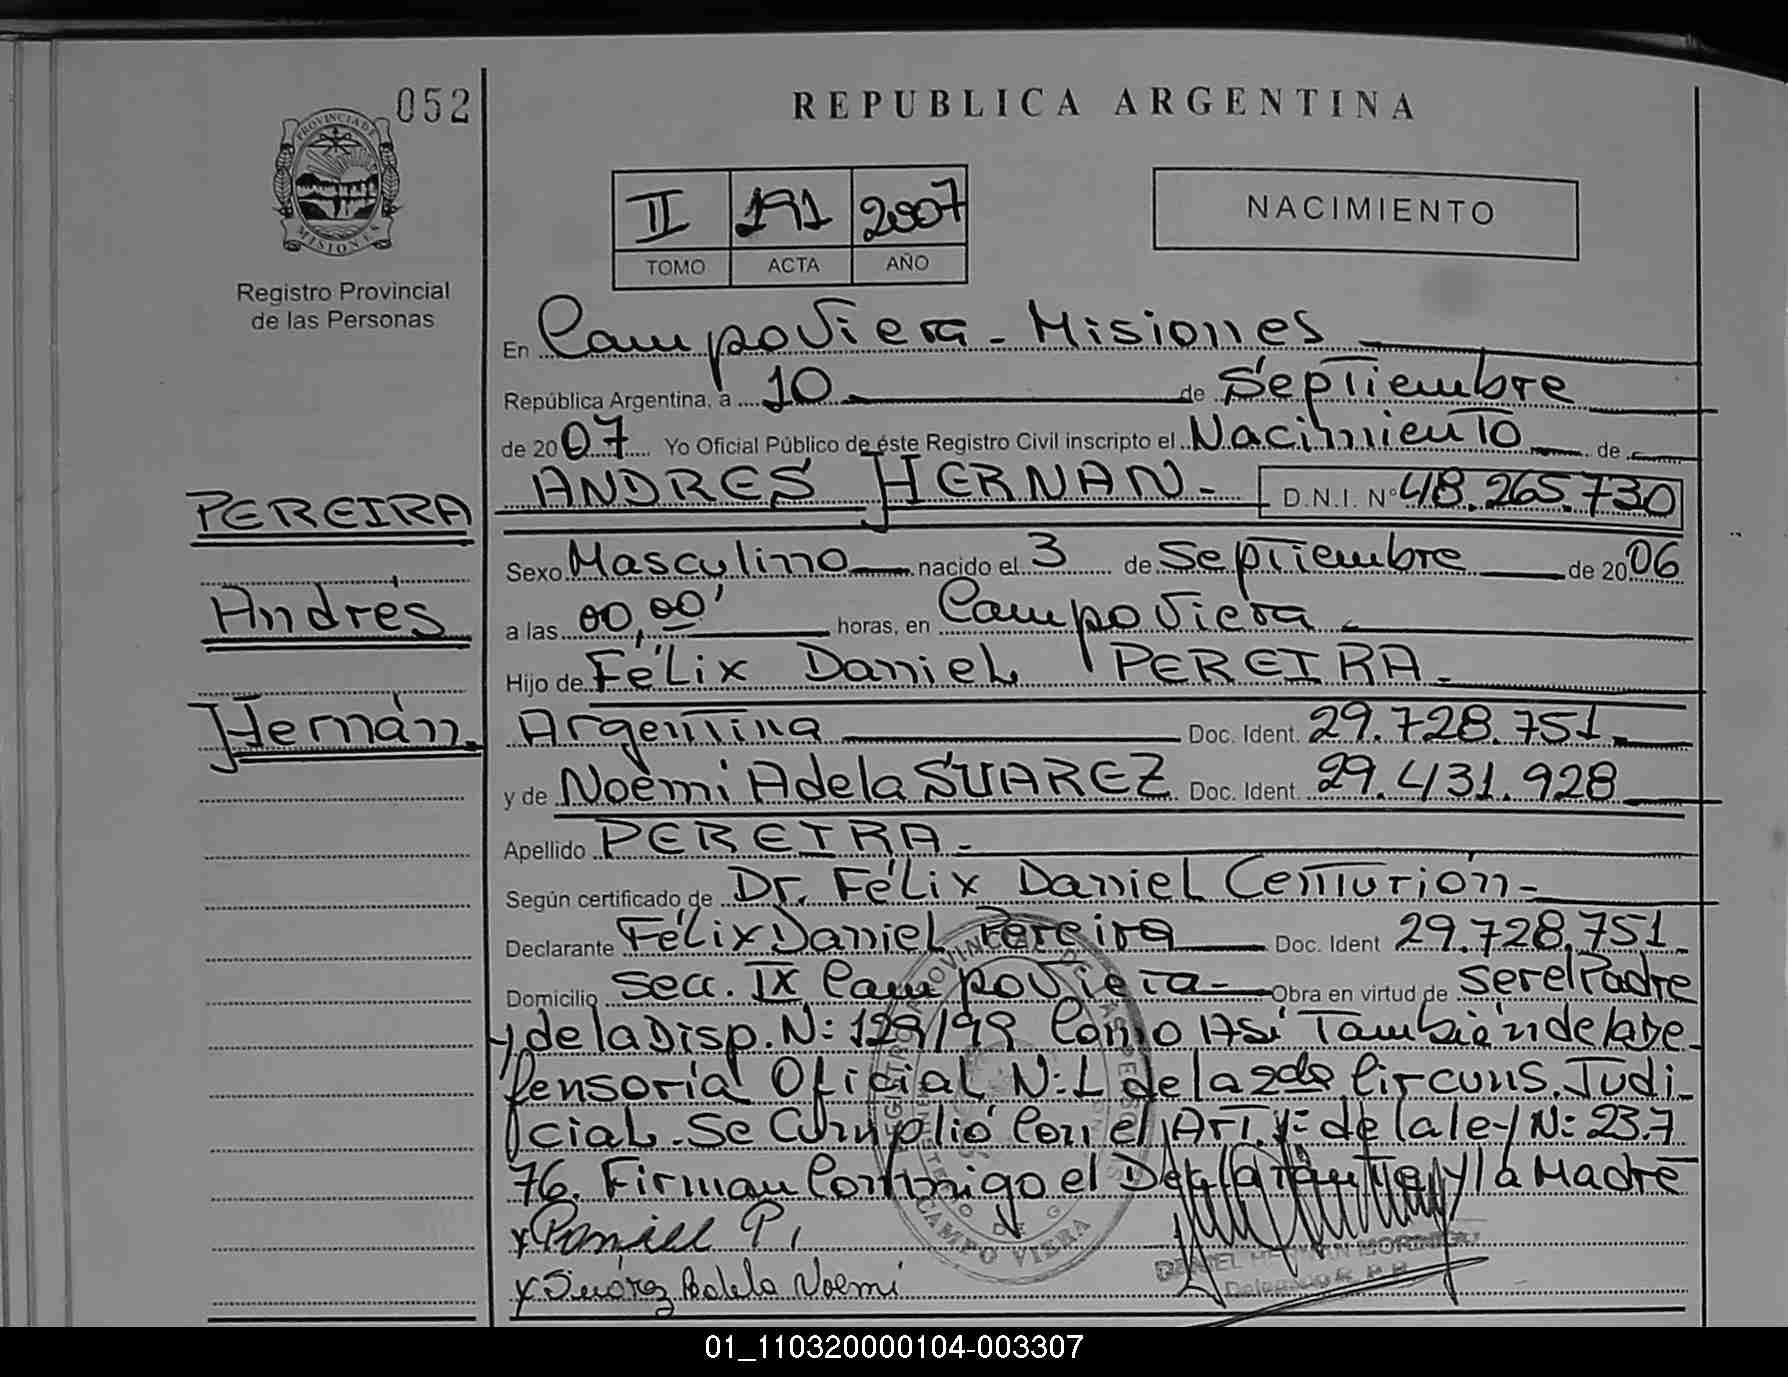 052
REPUBLICA ARGENTINA
PROVINCIA DE
MISIONES
Registro Provincial
de las Personas
II 191 2007
TOMO ACTA AÑO
NACIMIENTO
En Campo Viera - Misiones
República Argentina, a 10 de Septiembre
de 2007 Yo Oficial Público de éste Registro Civil inscripto el Nacimiento de
ANDRES HERNAN - D.N.I. Nº 48.265.730
PEREIRA
Andrés
Hernán.
Sexo Masculino nacido el 3 de Septiembre de 2006
a las 00,00' horas, en Campo Viera
Hijo de Félix Daniel PEREIRA.
Argentina Doc. Ident. 29.728.751.
y de Noemi Adela SUAREZ Doc. Ident 29.431.928
Apellido PEREIRA.
Según certificado de Dr. Félix Daniel Centurión-
Declarante Félix Daniel Pereira Doc. Ident 29.728.751.
Domicilio Secc. IX Campo Viera- Obra en virtud de ser el Padre
y de la Disp. N: 129/99 Como Asi También de la De
fensoría Oficial N: 1 de la 2da Circuns. Judi
cial. Se Cumplió Con el Art. de la ley N: 23.7
76. Firman Conmigo el Declarante y la Madre
x Daniel P.
x Suárez Adela Noemi
CAMPO VIERA
DANIEL
Delegado R.P.P.
01_110320000104-003307